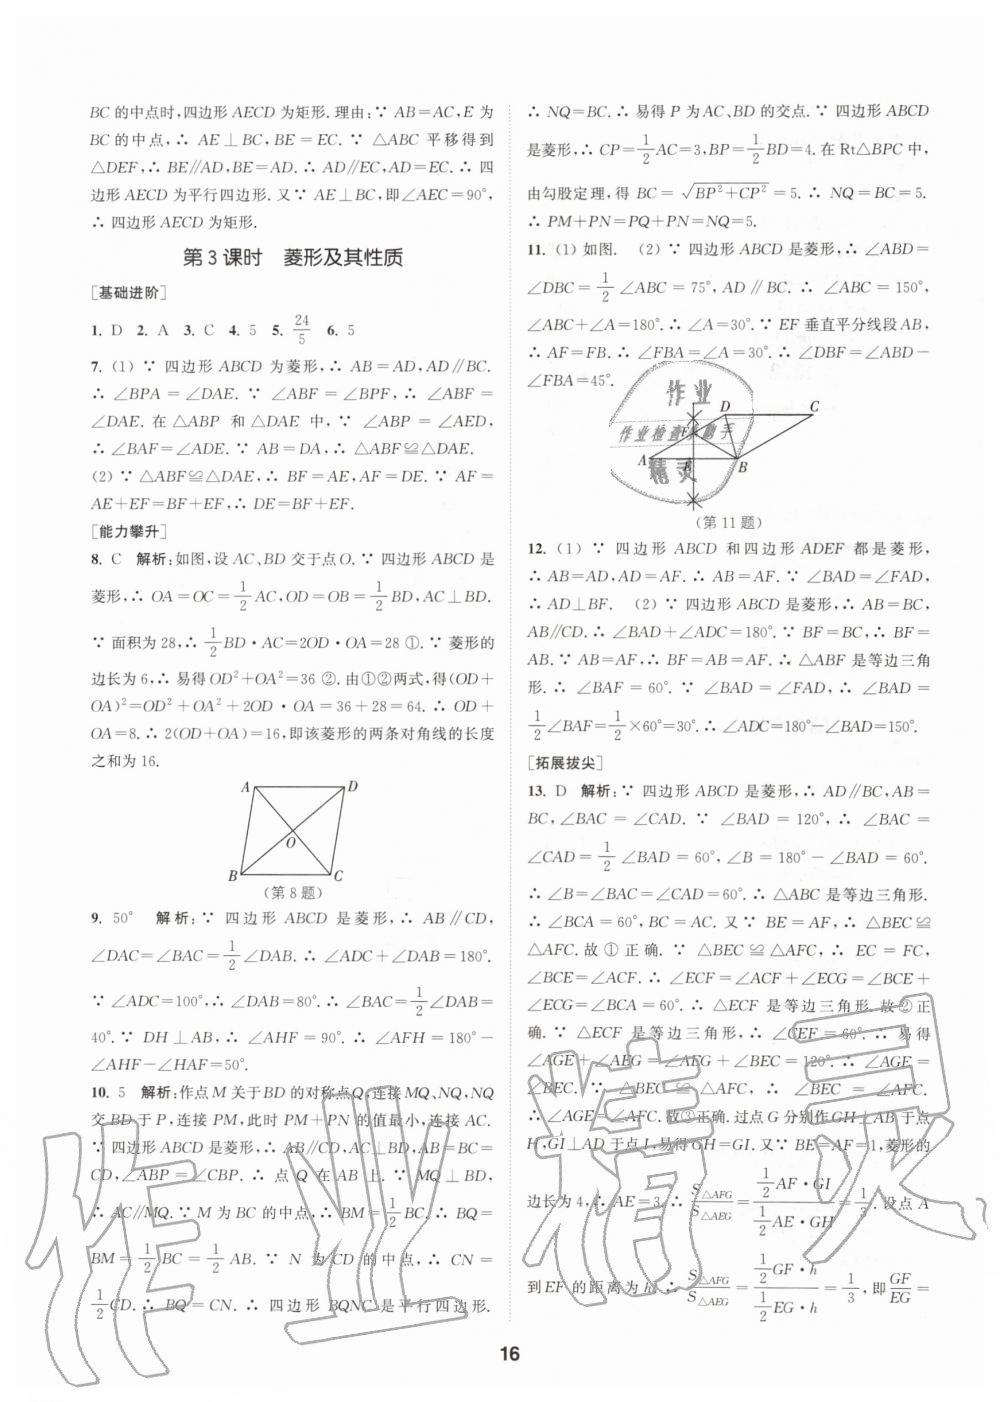 BC的中点时,四边形AECD为矩形.理由:∵ AB=AC,E为
BC的中点,∴ AE⊥BC,BE=EC.∵ △ABC平移得到
△DEF,∴ BE∥AD,BE=AD.∴ AD∥EC,AD=EC.∴ 四
边形AECD为平行四边形.又∵ AE⊥BC,即∠AEC=90°,
∴ 四边形AECD为矩形.
第3课时 菱形及其性质
[基础进阶]
1. D 2. A 3. C 4. 5 5. 24/5 6. 5
7. (1) ∵ 四边形ABCD为菱形,∴ AB=AD,AD∥BC.
∴ ∠BPA=∠DAE.∵ ∠ABF=∠BPF,∴ ∠ABF=
∠DAE.在△ABP和△DAE中,∵ ∠ABP=∠AED,
∴ ∠BAF=∠ADE.∵ AB=DA,∴ △ABF≌△DAE.
(2) ∵ △ABF≌△DAE,∴ BF=AE,AF=DE.∵ AF=
AE+EF=BF+EF,∴ DE=BF+EF.
[能力攀升]
8. C 解析:如图,设AC、BD交于点O.∵ 四边形ABCD是
菱形,∴ OA=OC=1/2AC,OD=OB=1/2BD,AC⊥BD.
∵ 面积为28,∴ 1/2BD·AC=2OD·OA=28 ①.∵ 菱形的
边长为6,∴ 易得OD²+OA²=36 ②.由①②两式,得(OD+
OA)²=OD²+OA²+2OD·OA=36+28=64.∴ OD+
OA=8.∴ 2(OD+OA)=16,即该菱形的两条对角线的长度
之和为16.
A D
O
B C
(第8题)
9. 50° 解析:∵ 四边形ABCD是菱形,∴ AB∥CD,
∠DAC=∠BAC=1/2∠DAB.∴ ∠ADC+∠DAB=180°.
∵ ∠ADC=100°,∴ ∠DAB=80°.∴ ∠BAC=1/2∠DAB=
40°.∵ DH⊥AB,∴ ∠AHF=90°.∴ ∠AFH=180°-
∠AHF-∠HAF=50°.
10. 5 解析:作点M关于BD的对称点Q,连接MQ、NQ,NQ
交BD于P,连接PM,此时PM+PN的值最小,连接AC.
∵ 四边形ABCD是菱形,∴ AB∥CD,AC⊥BD,AB=BC=
CD,∠ABP=∠CBP.∴ 点Q在AB上.∵ MQ⊥BD,
∴ AC∥MQ.∵ M为BC的中点,∴ BM=1/2BC.∴ BQ=
BM=1/2BC=1/2AB.∵ N为CD的中点,∴ CN=
1/2CD.∴ BQ=CN.∴ 四边形BQNC是平行四边形.
∴ NQ=BC.∴ 易得P为AC、BD的交点.∵ 四边形ABCD
是菱形,∴ CP=1/2AC=3,BP=1/2BD=4.在Rt△BPC中,
由勾股定理,得BC=√(BP²+CP²)=5.∴ NQ=BC=5.
∴ PM+PN=PQ+PN=NQ=5.
11. (1) 如图. (2) ∵ 四边形ABCD是菱形,∴ ∠ABD=
∠DBC=1/2∠ABC=75°,AD∥BC.∴ ∠ABC=150°,
∠ABC+∠A=180°.∴ ∠A=30°.∵ EF垂直平分线段AB,
∴ AF=FB.∴ ∠FBA=∠A=30°.∴ ∠DBF=∠ABD-
∠FBA=45°.
D C
F
A E B
(第11题)
12. (1) ∵ 四边形ABCD和四边形ADEF都是菱形,
∴ AB=AD,AD=AF.∴ AB=AF.∵ ∠BAD=∠FAD,
∴ AD⊥BF. (2) ∵ 四边形ABCD是菱形,∴ AB=BC,
AB∥CD.∴ ∠BAD+∠ADC=180°.∵ BF=BC,∴ BF=
AB.∵ AB=AF,∴ BF=AB=AF.∴ △ABF是等边三角
形.∴ ∠BAF=60°.∵ ∠BAD=∠FAD,∴ ∠BAD=
1/2∠BAF=1/2×60°=30°.∴ ∠ADC=180°-∠BAD=150°.
[拓展拔尖]
13. D 解析:∵ 四边形ABCD是菱形,∴ AD∥BC,AB=
BC,∠BAC=∠CAD.∵ ∠BAD=120°,∴ ∠BAC=
∠CAD=1/2∠BAD=60°,∠B=180°-∠BAD=60°.
∴ ∠B=∠BAC=∠CAD=60°.∴ △ABC是等边三角形.
∴ ∠BCA=60°,BC=AC.又∵ BE=AF,∴ △BEC≌
△AFC.故①正确.∵ △BEC≌△AFC,∴ EC=FC,
∠BCE=∠ACF.∴ ∠ECF=∠ACF+∠ECG=∠BCE+
∠ECG=∠BCA=60°.∴ △ECF是等边三角形.故②正
确.∵ △ECF是等边三角形,∴ ∠CEF=60°.∴ 易得
∠AGE+∠AEG=∠AEG+∠BEC=120°.∴ ∠AGE=
∠BEC.∵ △BEC≌△AFC,∴ ∠BEC=∠AFC.
∴ ∠AGE=∠AFC.故③正确.过点G分别作GH⊥AB于点
H,GI⊥AD于点I,易得GH=GI.又∵ BE=AF=1,菱形的
边长为4,∴ AE=3.∴ S△AFG/S△AEG=(1/2AF·GI)/(1/2AE·GH)=1/3.设点A
到EF的距离为h,∴ S△AFG/S△AEG=(1/2GF·h)/(1/2EG·h)=1/3,即GF/EG=
16
作业
作业检查小助手
精灵
作业精灵